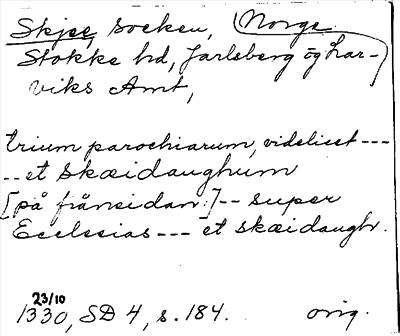 Skjee, socken, Norge.
Stokke hd, Jarlsberg og Lar-
viks Amt,
trium parochiarum, videlicet ---
-- et skæidaughum
[på frånsidan:] -- super
Ecclesias --- et skæidaugh.
23/10
1330, SD 4, s. 184. orig.